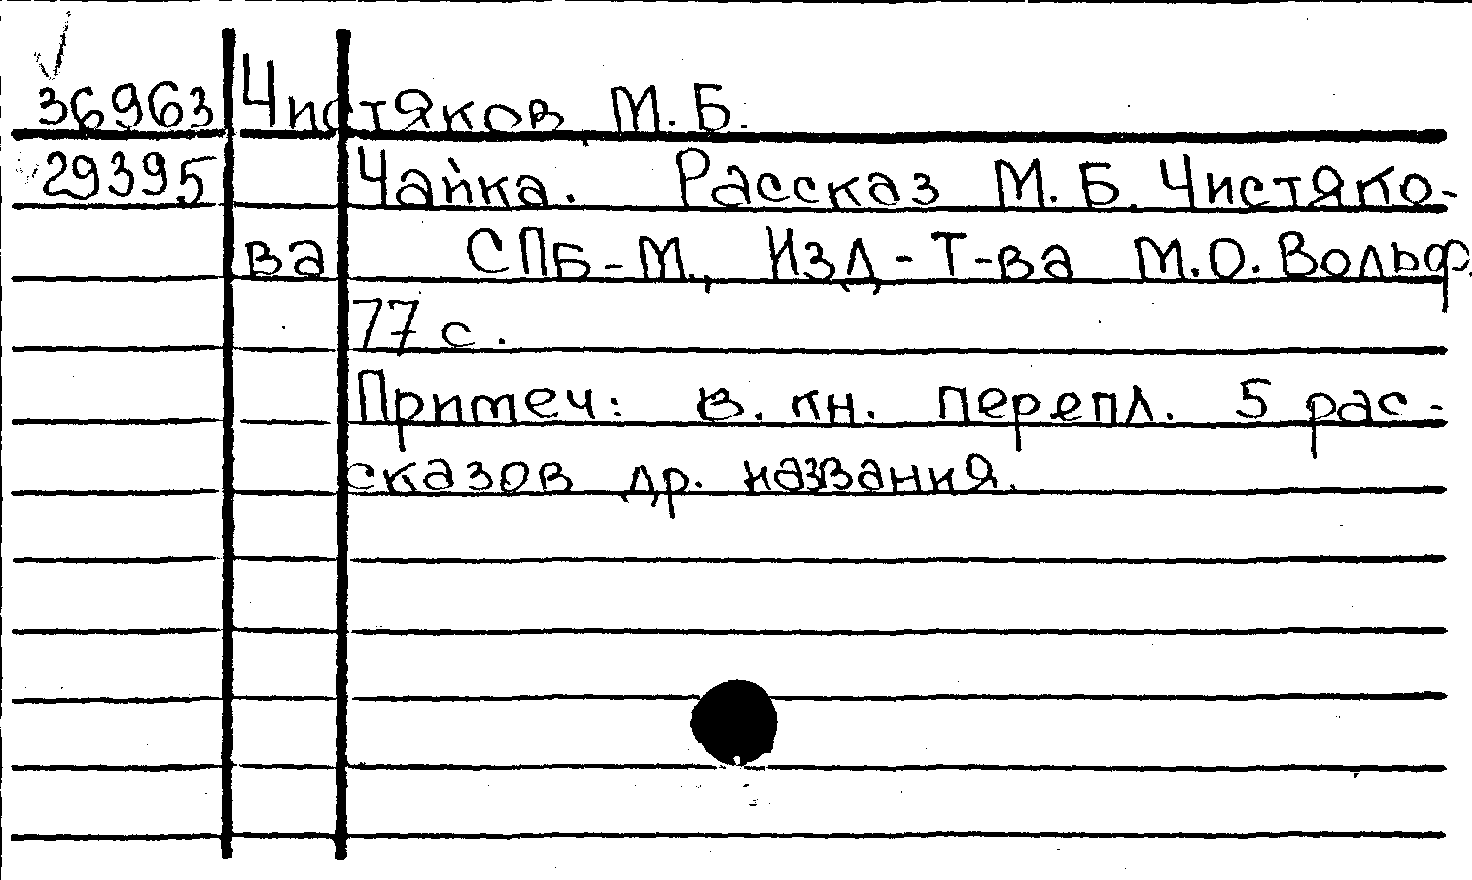 36963 Чистяков М. Б.
29395 Чайка. Рассказ М. Б. Чистяко-
ва СПБ-М., Изд-Т-ва М.О. Вольф
77 с.
Примеч: в. кн. перепл. 5 рас-
сказов др. названия.